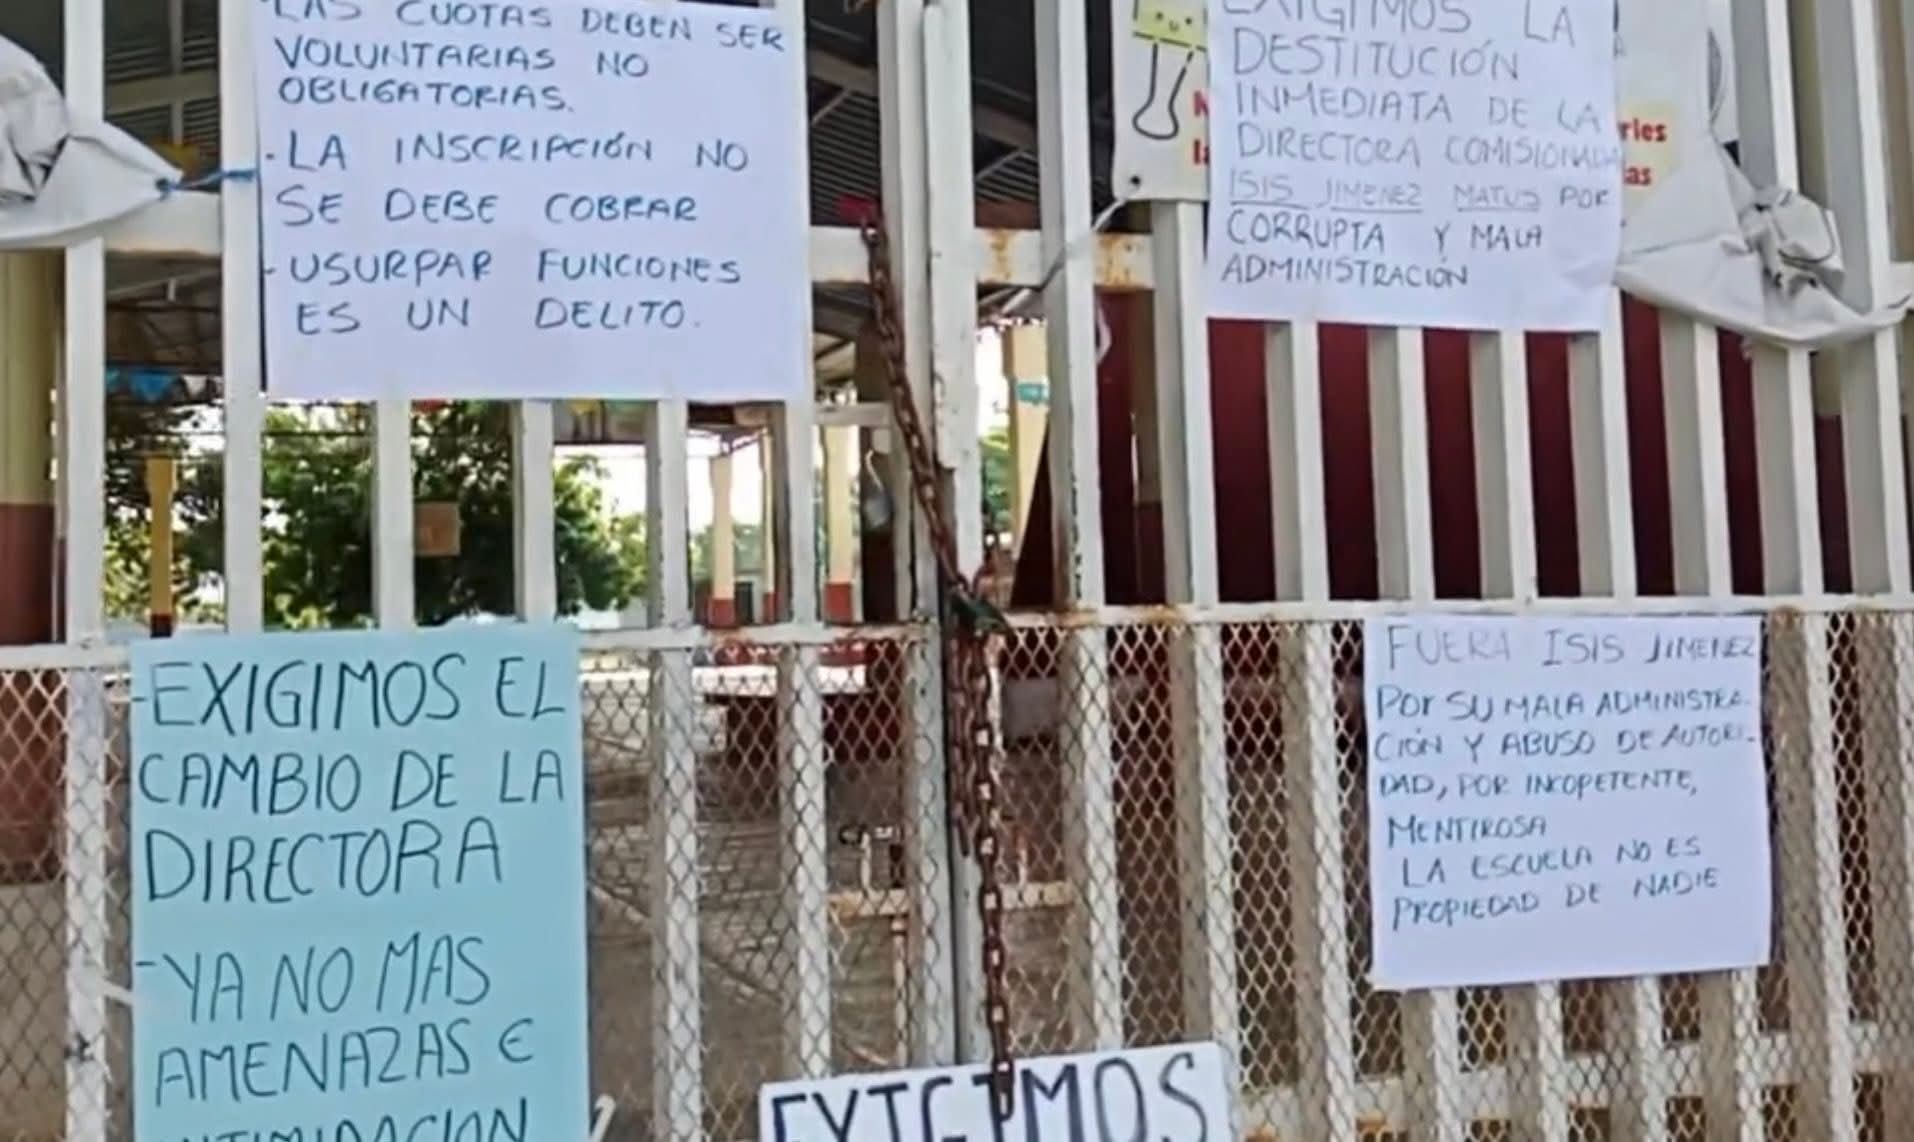 LAS CUOTAS DEBEN SER
VOLUNTARIAS NO
OBLIGATORIAS.
. LA INSCRIPCIÓN NO
SE DEBE COBRAR
- USURPAR FUNCIONES
ES UN DELITO.
EXIGIMOS LA
DESTITUCIÓN
INMEDIATA DE LA
DIRECTORA COMISIONADA
ISIS JIMENEZ MATUS POR
CORRUPTA Y MALA
ADMINISTRACIÓN
-EXIGIMOS EL
CAMBIO DE LA
DIRECTORA
-YA NO MAS
AMENAZAS E
INTIMIDACION
FUERA ISIS JIMENEZ
POR SU MALA ADMINISTRA-
CIÓN Y ABUSO DE AUTORI-
DAD, POR INCOPETENTE,
MENTIROSA
LA ESCUELA NO ES
PROPIEDAD DE NADIE
EXIGIMOS